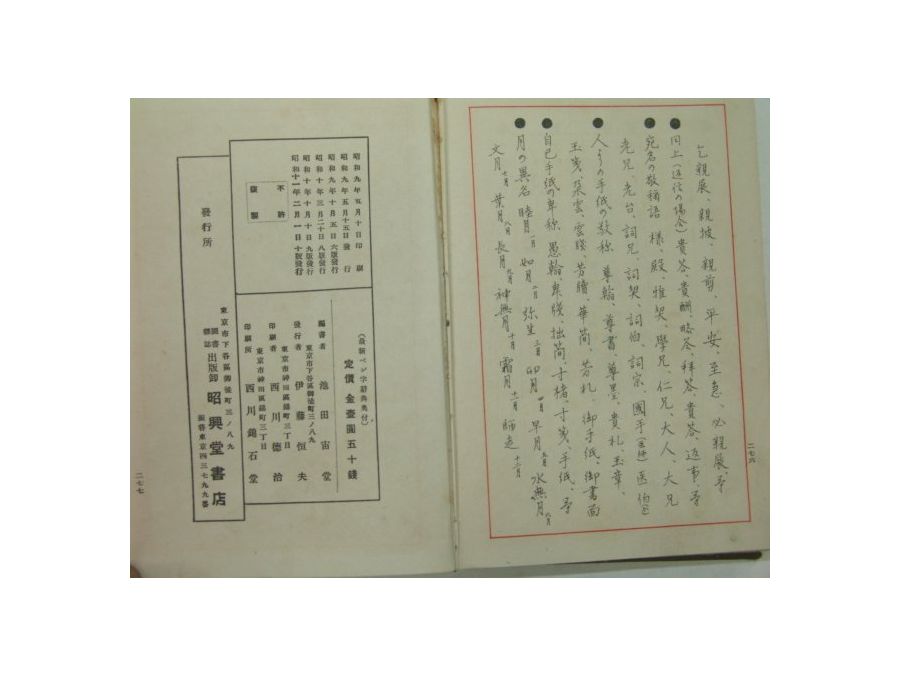 乞親展、親披、親剪、平安、至急、必親展、等
同上(返信の場合)貴答、貴酬、拝答、貴答、返事、等
宛名の敬称語 様、殿、雅契、學兄、仁兄、大人、大兄
老兄、老台、詞兄、詞契、詞伯、詞宗、國手(医師)医伯
人よりの手紙の敬称 尊翰、尊書、尊墨、貴札、玉章、
玉箋、朶雲、雲牋、芳牘、華简、芳札、御手紙、御書面
自己手紙の卑称 愚翰、卑牋、拙简、寸楮、寸箋、手紙、等
月の異名 睦月一月 如月二月 弥生三月 卯月四月 早月五月 水無月六月
文月七月 葉月八月 長月九月 神無月十月 霜月十一月 師走十二月
二七六
昭和九年五月十日印刷
昭和九年五月十五日發行
昭和九年十月五日六版發行
昭和十年三月二十日八版發行
昭和十年十月十日九版發行
昭和十一年二月一日十版發行
不許
複製
(最新ペン字辞典奥付)
定價金壹圓五十錢
編書者 池田宙堂
東京市下谷區御徒町三ノ八九
發行者 伊藤恒夫
東京市神田區錦町三丁目
印刷者 西川德治
東京市神田區錦町三丁目
印刷所 西川鎚石堂
發行所
東京市下谷區御徒町三ノ八九
圖書雜誌出版卸 昭興堂書店
振替東京四三七九九番
二七七